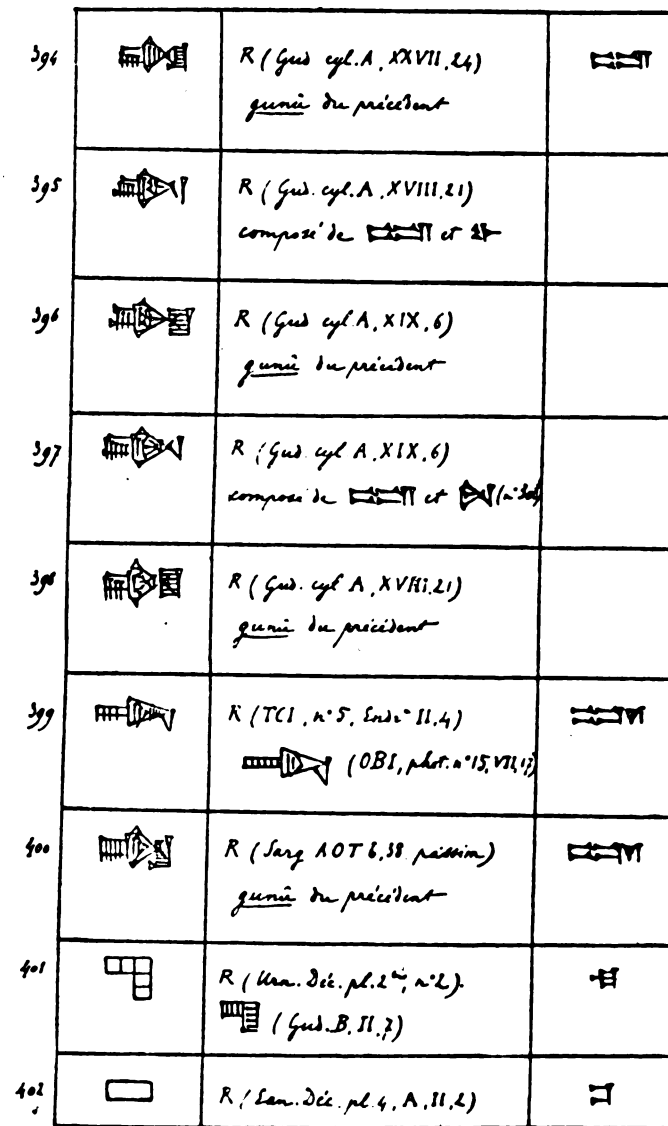 394 R (Gud cyl. A, XXVII, 24)
gunû du précédent
395 R (Gud. cyl. A, XVIII, 21)
composé de et
396 R (Gud cyl. A, XIX, 6)
gunû du précédent
397 R (Gud. cyl A, XIX, 6)
composé de et
398 R (Gud. cyl A, XVIII, 21)
gunû du précédent
399 R (TCI, n° 5, II, 4)
(OBI, phot. n° 15, VII, 17)
400 R (Sarg AOT b, 38 passim)
gunû du précédent
401 R (Urn. Déc. pl. 2 bis, n° 2).
(Gud. B, II, 7)
402 R (Ean. Déc. pl. 4, A, II, 2)